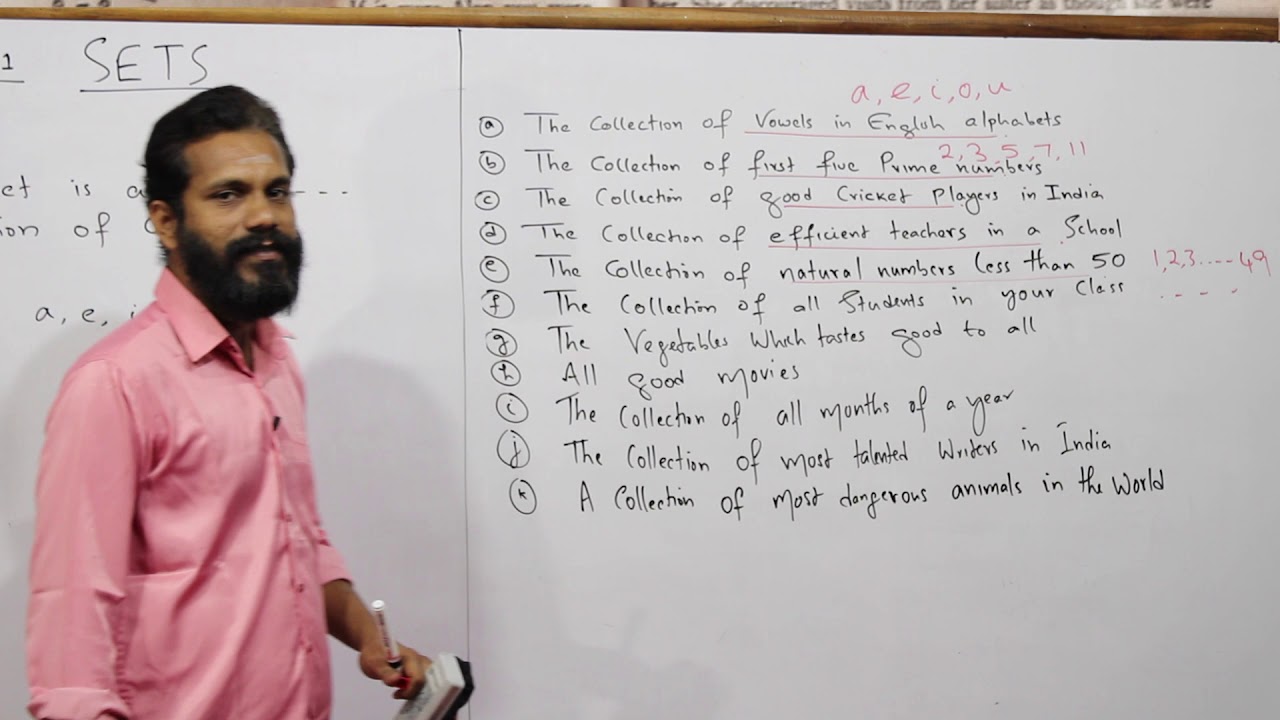 her. She discouraged visits from her sister as though she were
1 SETS
is a - - -
of
a, e, i
a, e, i, o, u
ⓐ The Collection of Vowels in English alphabets
2, 3, 5, 7, 11
ⓑ The Collection of first five Prime numbers
ⓒ The Collection of good Cricket Players in India
ⓓ The Collection of efficient teachers in a School
ⓔ The Collection of natural numbers less than 50 1,2,3.....49
ⓕ The Collection of all Students in your Class - - - -
ⓖ The Vegetables Which tastes good to all
ⓗ All good movies
ⓘ The Collection of all months of a year
ⓙ The Collection of most talented Writers in India
ⓚ A Collection of most dangerous animals in the World